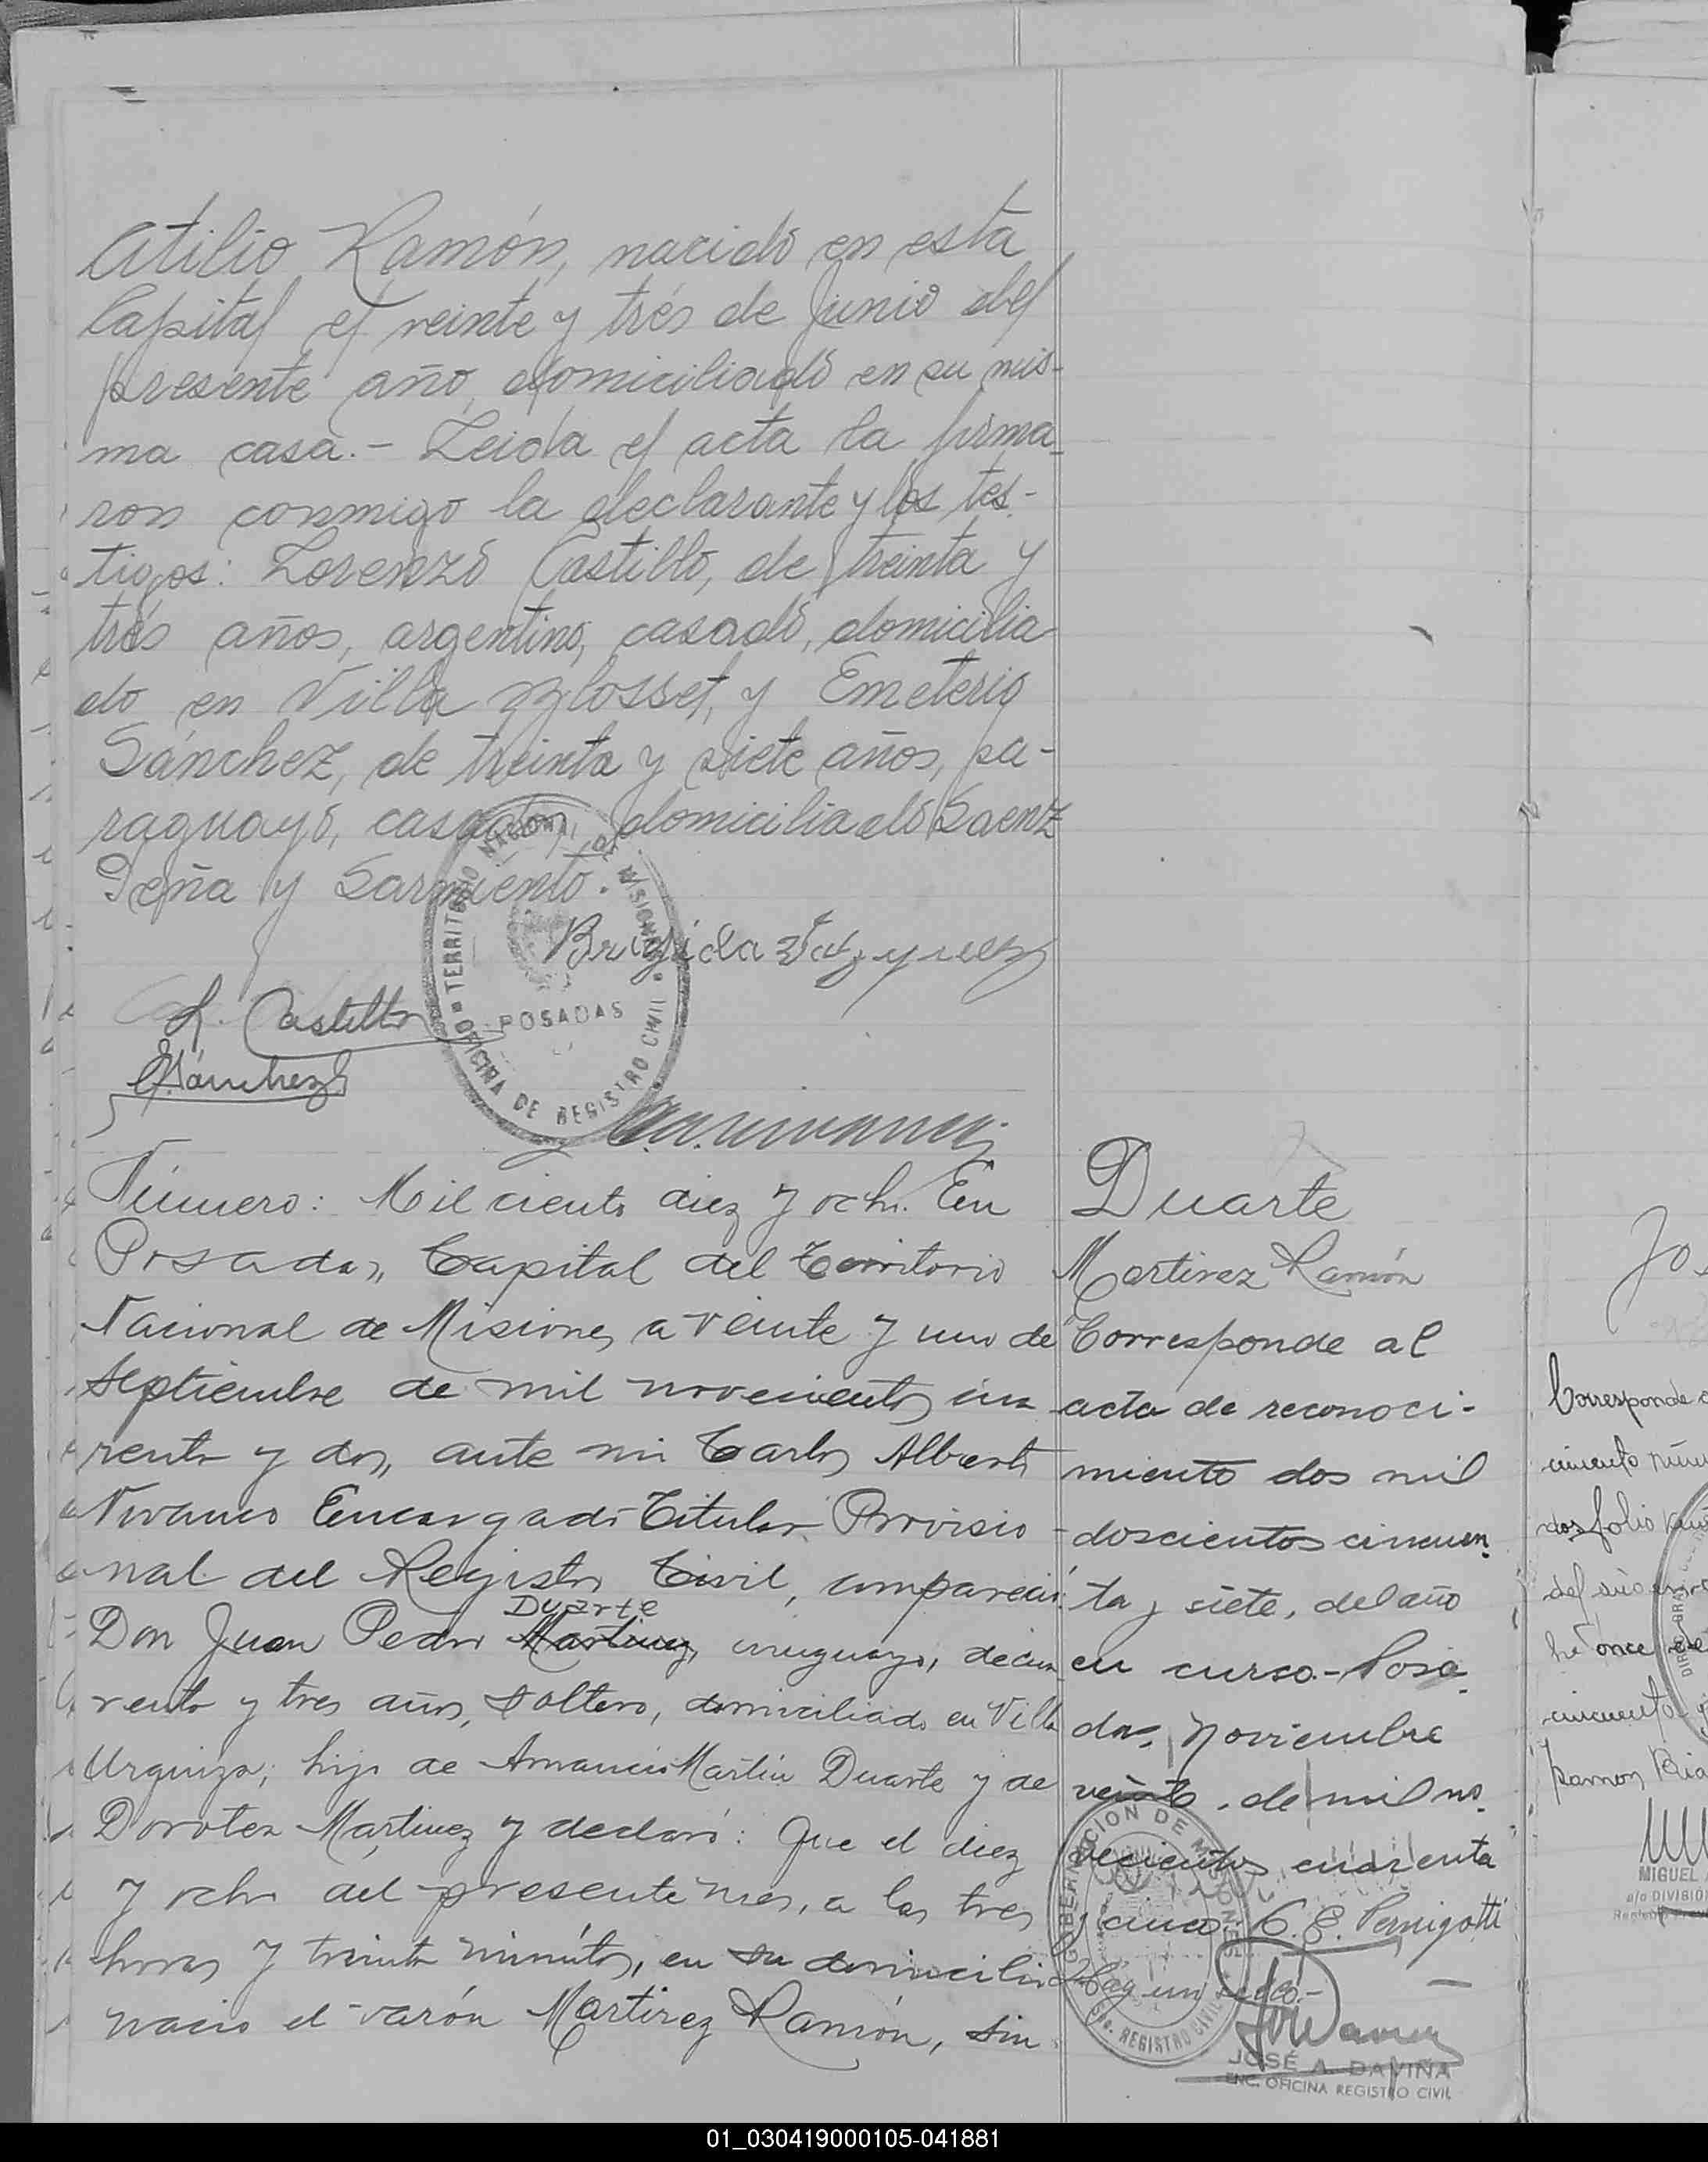 Atilio Ramón, nacido en esta
Capital el veinte y trés de Junio del
presente año, domiciliado en su mis-
ma casa.- Leida el acta la firma-
ron conmigo la declarante y los tes-
tigos: Lorenzo Castillo, de treinta y
trés años, argentino, casado, domicilia
do en Villa Blosset, y Emeterio
Sánchez, de treinta y siete años, pa-
raguayo, casado, domiciliado Saenz
Peña y Sarmiento.
Brigida Vazquez
L. Castillo
E. Sánchez
TERRITORIO NACIONAL DE MISIONES
POSADAS
OFICINA DE REGISTRO CIVIL
Número: Mil ciento diez y ocho. En
Posadas, Capital del Territorio
Nacional de Misiones, a veinte y uno de
Septiembre de mil novecientos cua
renta y dos, ante mi Carlos Alberto
Vivanco Encargado Titular Provisio-
nal del Registro Civil, compareció:
Duarte
Don Juan Pedro Martinez, uruguayo, de cua
renta y tres años, soltero, domiciliado en Villa
Urquiza; hijo de Amancio Martin Duarte y de
Dorotea Martinez y declaró: Que el diez
y ocho del presente mes, a las tres
horas y treinta minutos, en su domicilio
nacio el varón Martirez Ramón, sin
Duarte
Martirez Ramón
Corresponde al
acta de reconoci-
miento dos mil
doscientos cincuen-
ta y siete, del año
en curso.- Posa-
das, Noviembre
veinte, de mil no-
vecientos cuarenta
C. E. Pernigotti
Hay un sello.-
GOBERNACION DE MISIONES
REGISTRO CIVIL
JOSÉ A. DAVIÑA
ENC. OFICINA REGISTRO CIVIL
Corresponde
folio
once
MIGUEL
DIVISIÓN
01_030419000105-041881